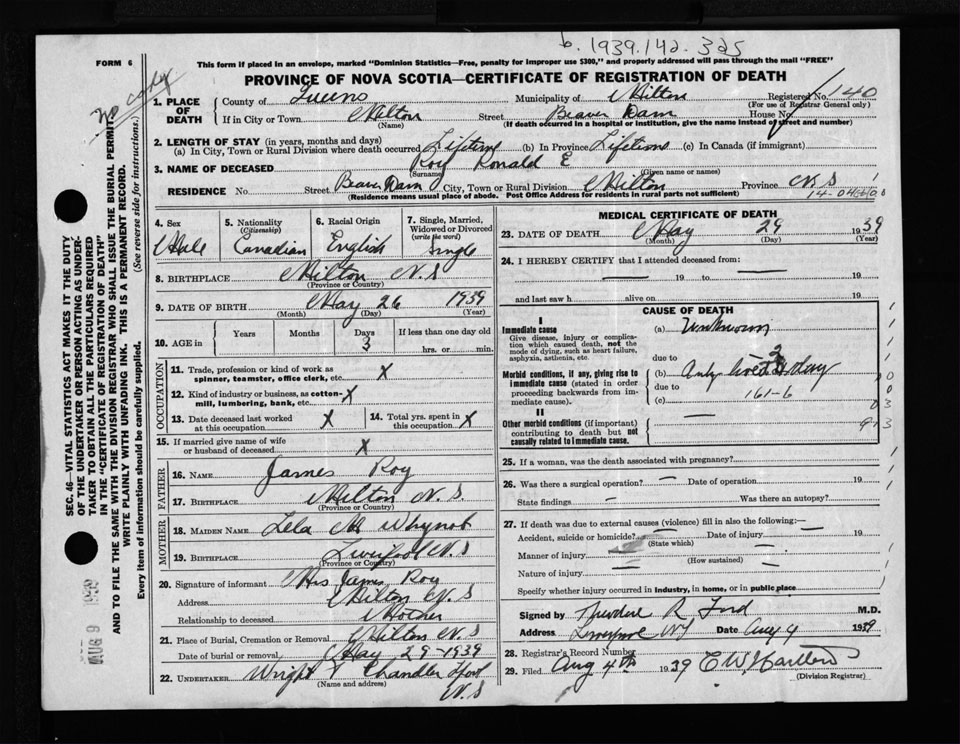 b. 1939.142.325
FORM 6
This form if placed in an envelope, marked "Dominion Statistics—Free, penalty for improper use $300," and properly addressed will pass through the mail "FREE"
PROVINCE OF NOVA SCOTIA—CERTIFICATE OF REGISTRATION OF DEATH
no copy
1. PLACE OF DEATH
County of Queens Municipality of Milton Registered No. 140
(For use of Registrar General only)
If in City or Town Milton Street Beaver Dam House No.
(Name) (If death occurred in a hospital or institution, give the name instead of street and number)
2. LENGTH OF STAY (in years, months and days)
(a) In City, Town or Rural Division where death occurred Lifetime (b) In Province Lifetime (c) In Canada (if immigrant)
3. NAME OF DECEASED Roy Ronald E
(Surname) (Given name or names)
RESIDENCE No. Street Beaver Dam City, Town or Rural Division Milton Province N S
(Residence means usual place of abode. Post Office Address for residents in rural parts not sufficient)
4. Sex Male
5. Nationality (Citizenship) Canadian
6. Racial Origin English
7. Single, Married, Widowed or Divorced (write the word) Single
8. BIRTHPLACE Milton N. S
(Province or Country)
9. DATE OF BIRTH May 26 1939
(Month) (Day) (Year)
10. AGE in Years Months Days 3 If less than one day old
hrs. or min.
OCCUPATION
11. Trade, profession or kind of work as spinner, teamster, office clerk, etc. X
12. Kind of industry or business, as cotton-mill, lumbering, bank, etc. X
13. Date deceased last worked at this occupation X
14. Total yrs. spent in this occupation X
15. If married give name of wife or husband of deceased X
FATHER
16. NAME James Roy
17. BIRTHPLACE Milton N. S.
(Province or Country)
MOTHER
18. MAIDEN NAME Lela M Whynot
19. BIRTHPLACE Liverpool N. S
(Province or Country)
20. Signature of informant Mrs James Roy
Address Milton N. S
Relationship to deceased Mother
21. Place of Burial, Cremation or Removal Milton N. S
Date of burial or removal May 29-1939
22. UNDERTAKER Wright Chandler
(Name and address) N. S
MEDICAL CERTIFICATE OF DEATH
23. DATE OF DEATH May 29 1939
(Month) (Day) (Year)
24. I HEREBY CERTIFY that I attended deceased from:
— 19 to — 19
and last saw h alive on — 19
CAUSE OF DEATH
I
Immediate cause (a) Unknown
Give disease, injury or complication which caused death, not the mode of dying, such as heart failure, asphyxia, asthenia, etc.
due to
Morbid conditions, if any, giving rise to immediate cause (stated in order proceeding backwards from immediate cause).
(b) Only lived 3 day
due to
(c) 161-6
II
Other morbid conditions (if important) contributing to death but not causally related to immediate cause.
25. If a woman, was the death associated with pregnancy?
26. Was there a surgical operation? – Date of operation 19
State findings – Was there an autopsy?
27. If death was due to external causes (violence) fill in also the following:—
Accident, suicide or homicide? Date of injury 19
(State which)
Manner of injury
(How sustained)
Nature of injury
Specify whether injury occurred in industry, in home, or in public place
Signed by Theodore R Ford M.D.
Address Date Aug 4 1939
28. Registrar's Record Number
29. Filed Aug 4th 1939
(Division Registrar)
SEC. 46—VITAL STATISTICS ACT MAKES IT THE DUTY
OF THE UNDERTAKER OR PERSON ACTING AS UNDERTAKER TO OBTAIN ALL THE PARTICULARS REQUIRED
IN THE "CERTIFICATE OF REGISTRATION OF DEATH"
AND TO FILE THE SAME WITH THE DIVISION REGISTRAR WHO SHALL ISSUE THE BURIAL PERMIT.
WRITE PLAINLY WITH UNFADING INK. THIS IS A PERMANENT RECORD.
Every item of information should be carefully supplied. (See reverse side for instructions.)
AUG 9 1939